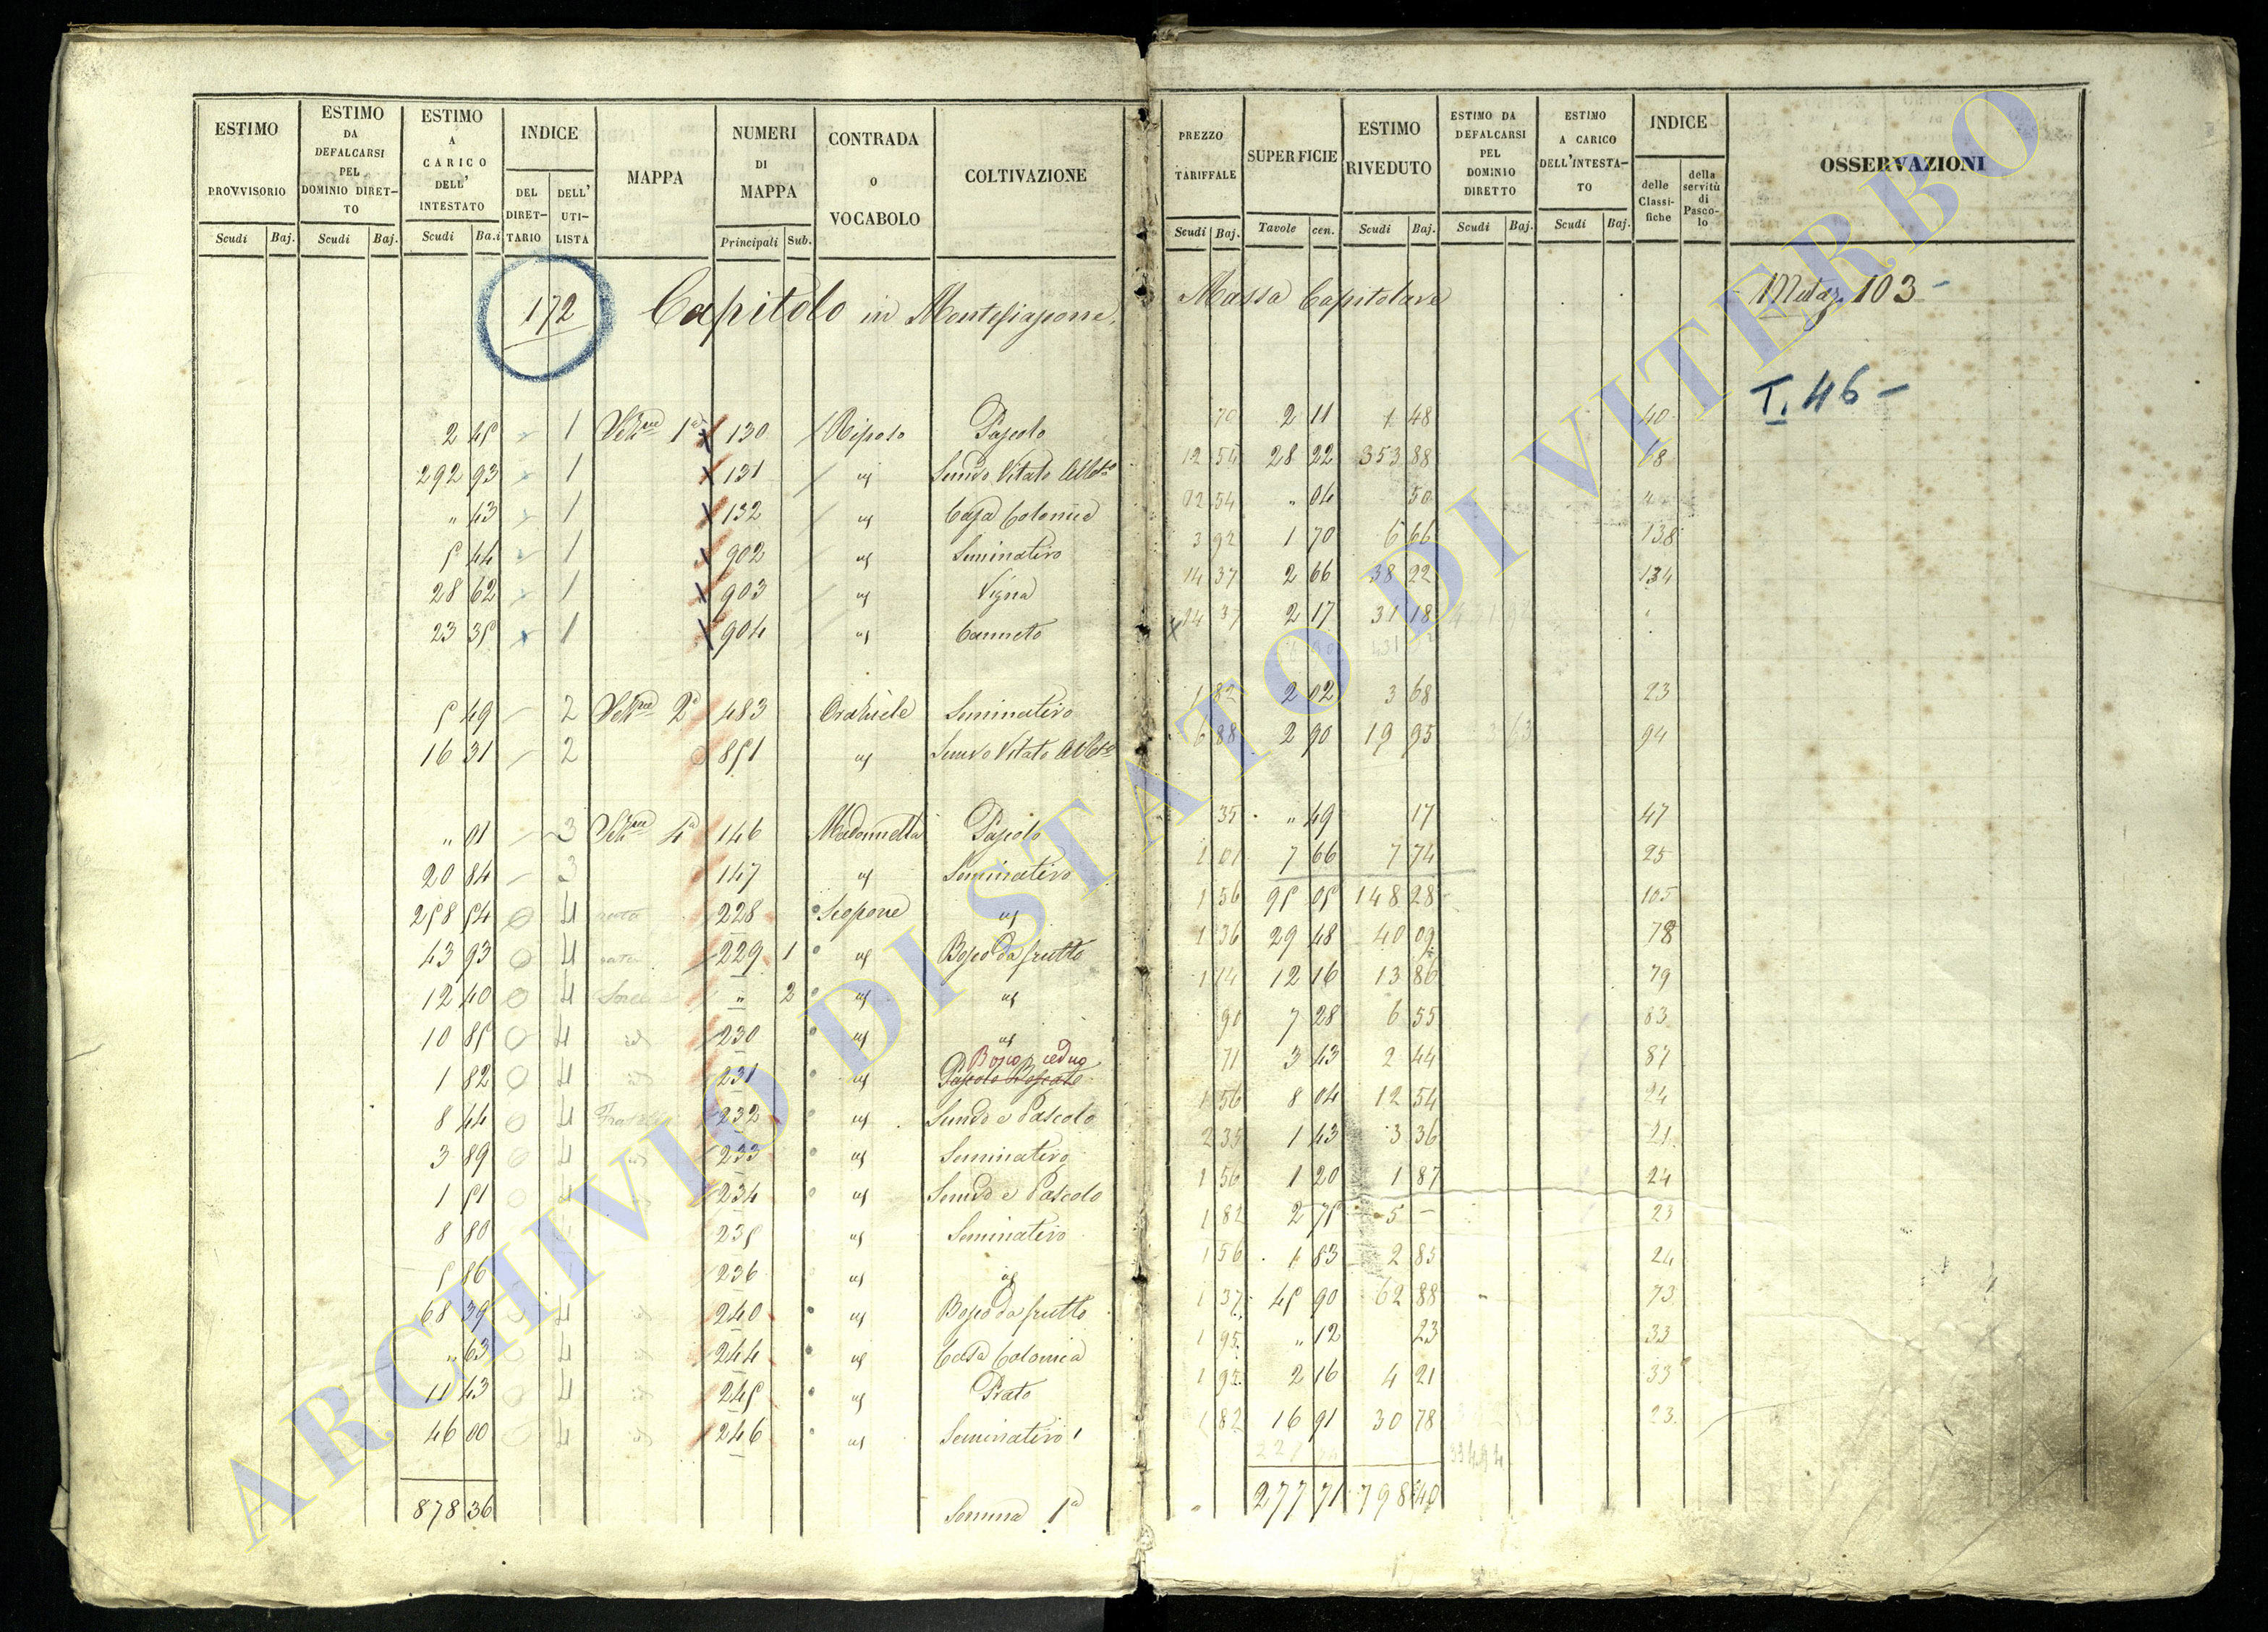 ESTIMO PROVVISORIO
ESTIMO DA DEFALCARSI PEL DOMINIO DIRETTO
ESTIMO A CARICO DELL' INTESTATO
INDICE
DEL DIRETTARIO
DELL' UTILISTA
MAPPA
NUMERI DI MAPPA
CONTRADA O VOCABOLO
COLTIVAZIONE
PREZZO TARIFFALE
SUPERFICIE
ESTIMO RIVEDUTO
ESTIMO DA DEFALCARSI PEL DOMINIO DIRETTO
ESTIMO A CARICO DELL'INTESTATO
INDICE
delle Classifiche
della servitù di Pascolo
OSSERVAZIONI
Scudi Baj. Scudi Baj. Scudi Ba.i Principali Sub. Scudi Baj. Tavole cen. Scudi Baj. Scudi Baj. Scudi Baj.
172 Capitolo in Montefiascone Massa Capitolare Mutaz. 103 -
T. 46 -
2 45 1 1a 130 Riposo Pascolo 70 2 11 1 48 40
292 93 1 131 " 12 54 28 22 353 88 68
" 43 1 132 " Casa Colonica 12 54 " 04 50 "
5 44 1 902 " Seminativo 3 92 1 70 6 66 138
28 62 1 903 " Vigna 14 37 2 66 38 22 134
23 35 1 904 " Canneto 14 37 2 17 31 18 "
5 49 2 2a 483 Seminativo 1 82 2 02 3 68 23
16 31 2 851 " 6 88 2 90 19 95 94
" 01 3 4a 146 Madonnella Pascolo 35 " 49 17 47
20 84 3 147 " Seminativo 1 01 7 66 7 74 25
258 54 4 228 Scopone " 1 56 95 05 148 28 105
43 93 4 229 1 " Bosco da frutto 1 36 29 48 40 09 78
12 40 4 " 2 " " 1 14 12 16 13 86 79
10 85 4 230 " " 90 7 28 6 55 83
Bosco ceduo
1 82 4 231 " Pascolo Boscato 71 3 43 2 44 87
8 44 4 232 " Semvo e Pascolo 1 56 8 04 12 54 24
3 89 4 233 " Seminativo 2 35 1 43 3 36 21
1 51 4 234 " Semvo e Pascolo 1 56 1 20 1 87 24
8 80 235 " Seminativo 1 82 2 75 5 - 23
5 86 236 " " 1 56 1 83 2 85 24
68 39 4 240 " Bosco da frutto 1 37 45 90 62 88 73
" 63 4 244 " Casa Colonica 1 95 " 12 23 33
11 43 4 245 " Prato 1 95 2 16 4 21 33
46 00 4 246 " Seminativo 1 82 16 91 30 78 23
878 36 Somma 1a 277 71 798 40
ARCHIVIO DI STATO DI VITERBO